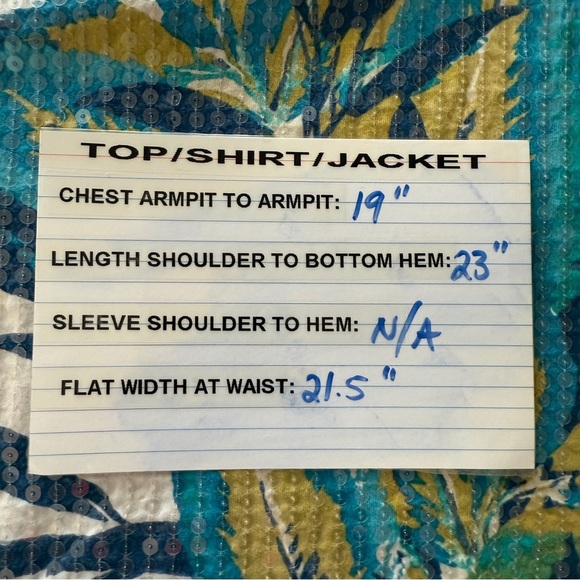 TOP/SHIRT/JACKET
CHEST ARMPIT TO ARMPIT: 19"
LENGTH SHOULDER TO BOTTOM HEM: 23"
SLEEVE SHOULDER TO HEM: N/A
FLAT WIDTH AT WAIST: 21.5"